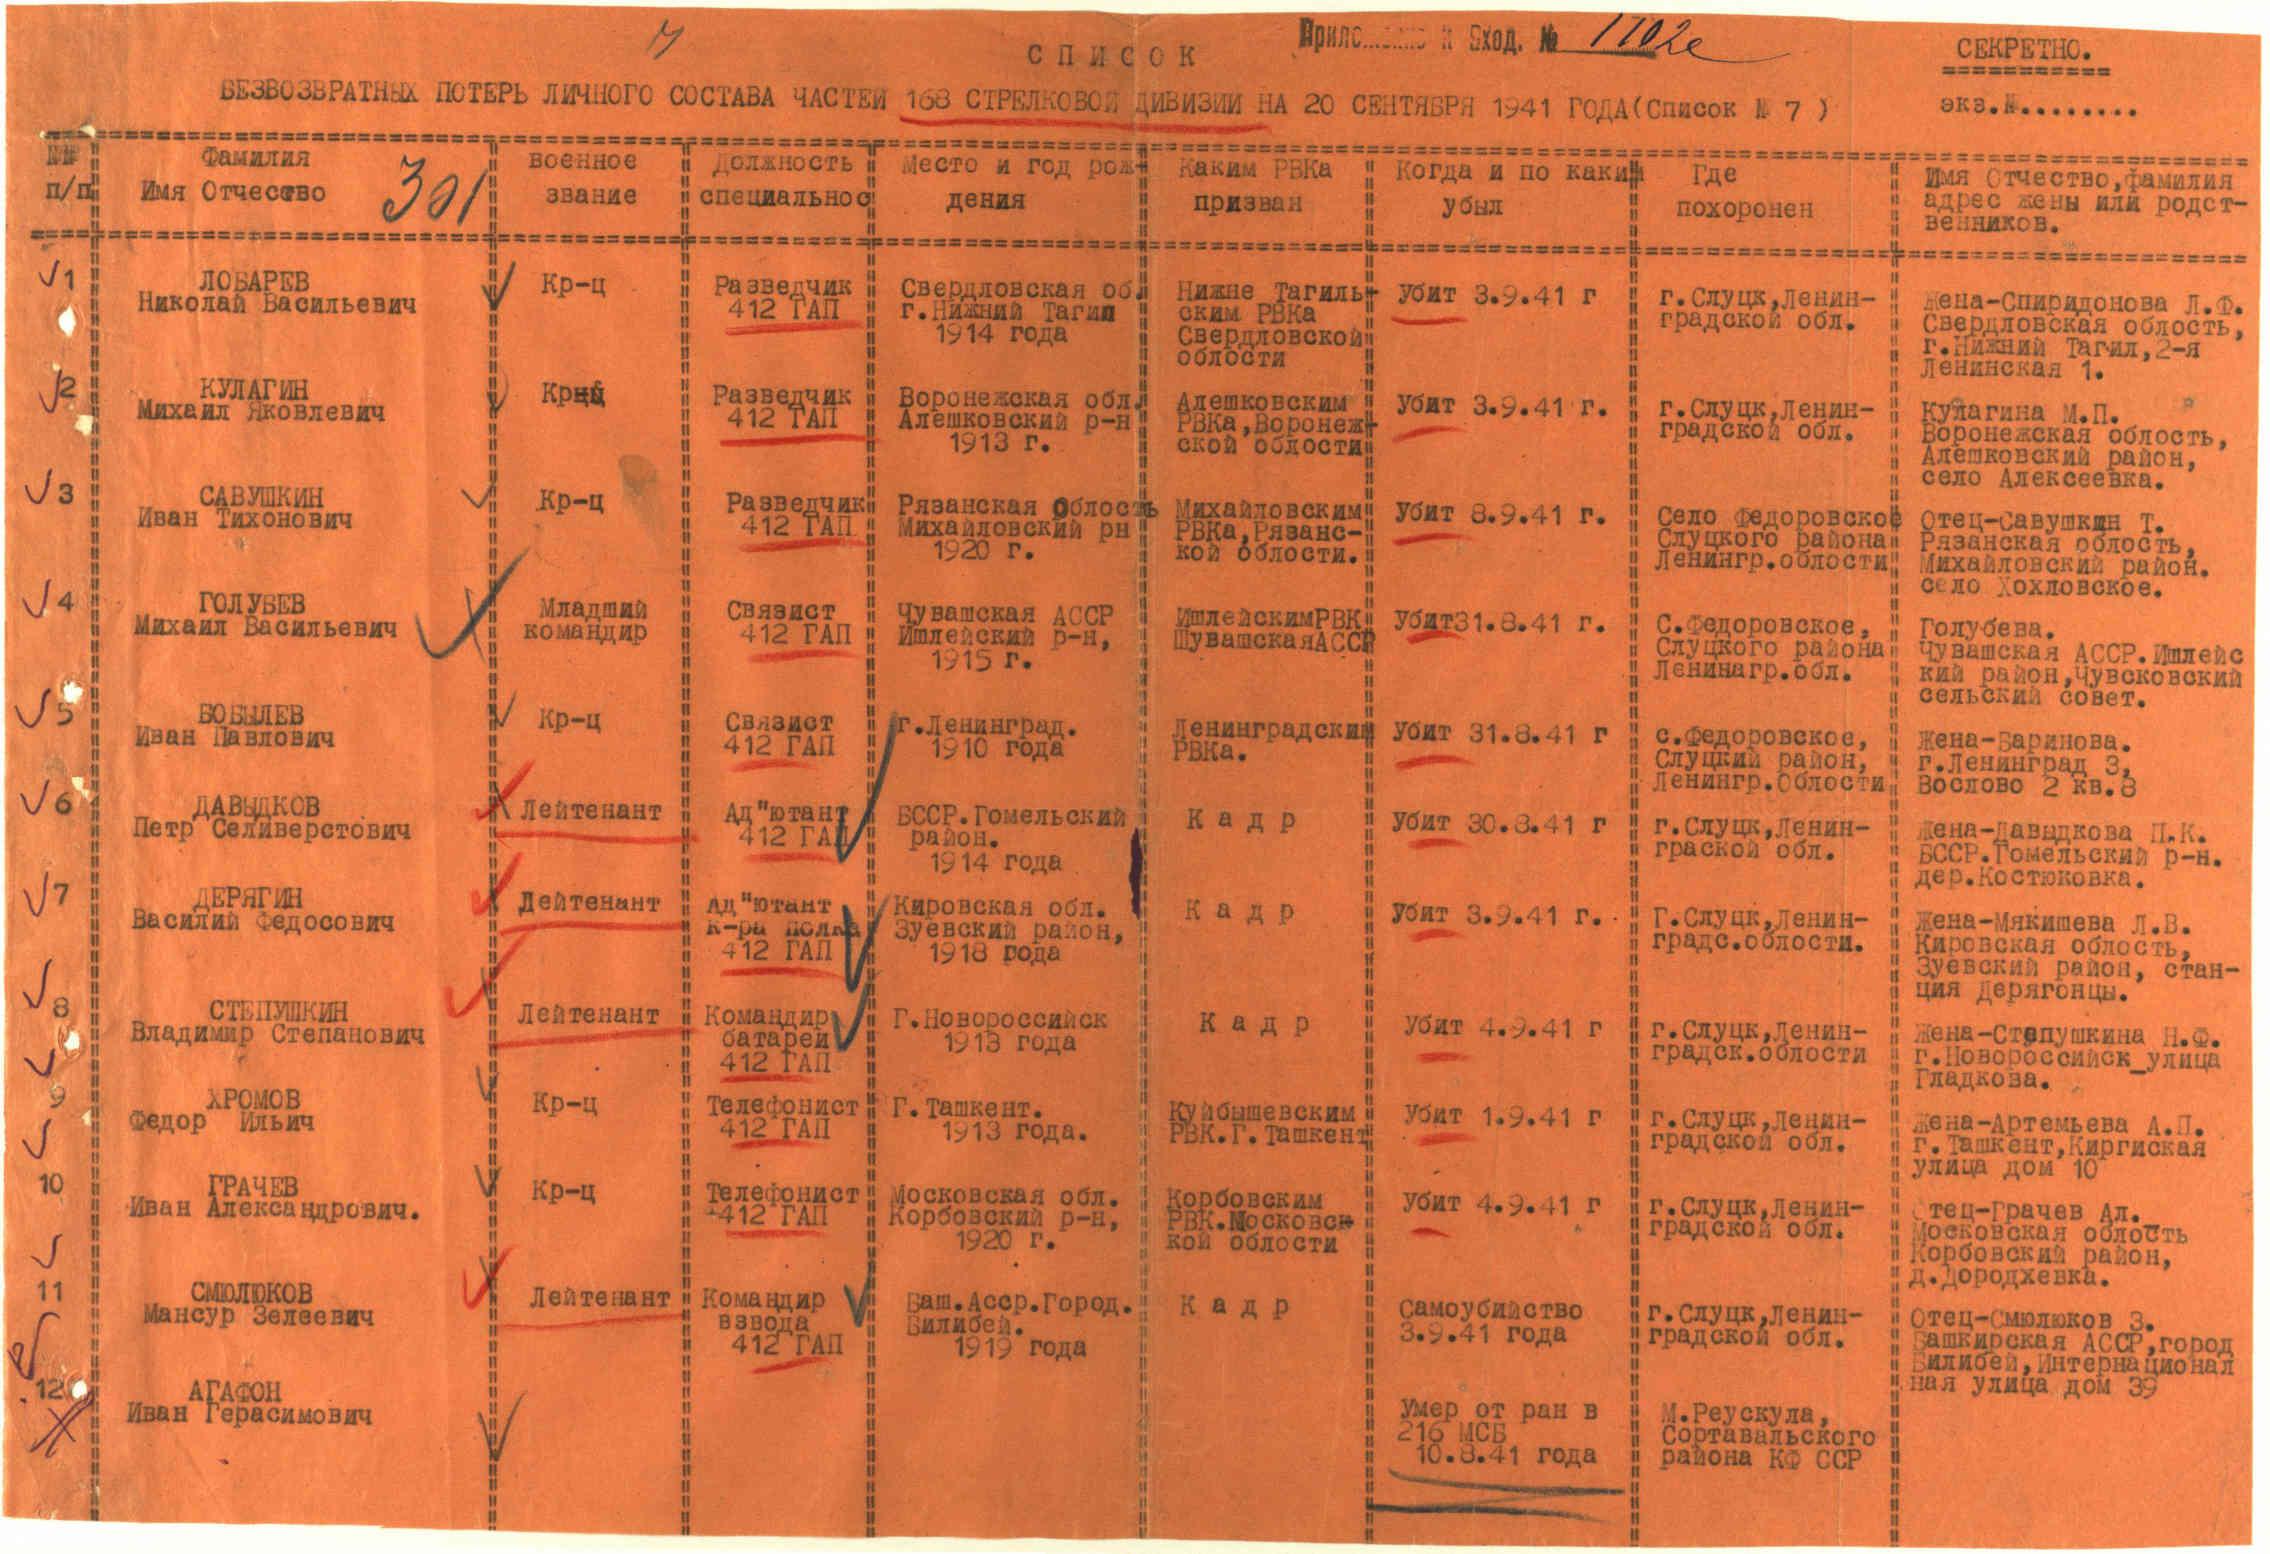 СПИСОК
Вход. № 1702с
СЕКРЕТНО.
экз.№........
БЕЗВОЗВРАТНЫХ ПОТЕРЬ ЛИЧНОГО СОСТАВА ЧАСТЕЙ 168 СТРЕЛКОВОЙ ДИВИЗИИ НА 20 СЕНТЯБРЯ 1941 ГОДА(Список № 7 )
№№
п/п
Фамилия
Имя Отчество
301
военное
звание
Должность
специальнос
Место и год рож-
дения
Каким РВКа
призван
Когда и по каким
убыл
Где
похоронен
Имя Отчество,фамилия
адрес жены или родст-
венников.
1
ЛОБАРЕВ
Николай Васильевич
Кр-ц
Разведчик
412 ГАП
Свердловская об.
г.Нижний Тагил
1914 года
Нижне Тагиль-
ским РВКа
Свердловской
облости
Убит 3.9.41 г
г.Слуцк,Ленин-
градской обл.
Жена-Спиридонова Л.Ф.
Свердловская облость,
г.Нижний Тагил,2-я
Ленинская 1.
2
КУЛАГИН
Михаил Яковлевич
Разведчик
412 ГАП
Воронежская обл.
Алешковский р-н
1913 г.
Алешковским
РВКа,Воронеж-
ской облости
Убит 3.9.41 г.
г.Слуцк,Ленин-
градской обл.
Кулагина М.П.
Воронежская облость,
Алешковский район,
село Алексеевка.
3
САВУШКИН
Иван Тихонович
Кр-ц
Разведчик
412 ГАП
Рязанская Облость
Михайловский рн
1920 г.
Михайловским
РВКа,Рязанс-
кой облости.
Убит 8.9.41 г.
Село Федоровское
Слуцкого района
Ленингр.облости
Отец-Савушкин Т.
Рязанская облость,
Михайловский район.
село Хохловское.
4
ГОЛУБЕВ
Михаил Васильевич
Младший
командир
Связист
412 ГАП
Чувашская АССР
Ишлейский р-н,
1915 г.
ИшлейскимРВК
ШувашскаяАССР
Убит31.8.41 г.
С.Федоровское,
Слуцкого района
Ленинагр.обл.
Голубева.
Чувашская АССР.Ишлейс
кий район,Чувсковский
сельский совет.
5
БОБЫЛЕВ
Иван Павлович
Кр-ц
Связист
412 ГАП
г.Ленинград.
1910 года
Ленинградским
РВКа.
Убит 31.8.41 г
с.Федоровское,
Слуцкий район,
Ленингр.Облости
Жена-Баринова.
г.Ленинград 3,
Вослово 2 кв.8
6
ДАВЫДКОВ
Петр Селиверстович
Лейтенант
Ад"ютант
412 ГАП
БССР.Гомельский
район.
1914 года
К а д р
Убит 30.8.41 г
г.Слуцк,Ленин-
граской обл.
Жена-Давыдкова П.К.
БССР.Гомельский р-н.
дер.Костюковка.
7
ДЕРЯГИН
Василий Федосович
Лейтенант
Ад"ютант
к-ра полка
412 ГАП
Кировская обл.
Зуевский район,
1918 года
К а д р
Убит 3.9.41 г.
Г.Слуцк,Ленин-
градс.облости.
Жена-Мякишева Л.В.
Кировская облость,
Зуевский район, стан-
ция Дерягонцы.
8
СТЕПУШКИН
Владимир Степанович
Лейтенант
Командир
батареи
412 ГАП
Г.Новороссийск
1913 года
К а д р
Убит 4.9.41 г
г.Слуцк,Ленин-
градск.облости
Жена-Степушкина Н.Ф.
г.Новороссийск_улица
Гладкова.
9
ХРОМОВ
Федор Ильич
Кр-ц
Телефонист
412 ГАП
Г.Ташкент.
1913 года.
Куйбышевским
РВК.Г.Ташкент
Убит 1.9.41 г
г.Слуцк,Ленин-
градской обл.
Жена-Артемьева А.П.
г.Ташкент,Киргиская
улица дом 10
10
ГРАЧЕВ
Иван Александрович.
Кр-ц
Телефонист
412 ГАП
Московская обл.
Корбовский р-н,
1920 г.
Корбовским
РВК.Московск-
кой облости
Убит 4.9.41 г
г.Слуцк,Ленин-
градской обл.
Отец-Грачев Ал.
Московская облость
Корбовский район,
д.Дородхевка.
11
СМОЛЮКОВ
Мансур Зелеевич
Лейтенант
Командир
взвода
412 ГАП
Баш.Асср.Город.
Билибей.
1919 года
К а д р
Самоубийство
3.9.41 года
г.Слуцк,Ленин-
градской обл.
Отец-Смолюков З.
Башкирская АССР,город
Билибей,Интернационал
ная улица дом 39
12
АГАФОН
Иван Герасимович
Умер от ран в
216 МСБ
10.8.41 года
М.Реускула,
Сортавальского
района КФ ССР